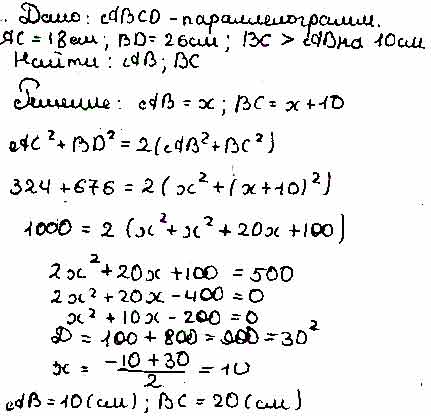 Дано: ABCD - параллелограмм.
AC = 18 см; BD = 26 см; BC > AB на 10 см
Найти: AB; BC
Решение: AB = x; BC = x + 10
AC² + BD² = 2(AB² + BC²)
324 + 676 = 2(x² + (x + 10)²)
1000 = 2(x² + x² + 20x + 100)
2x² + 20x + 100 = 500
2x² + 20x - 400 = 0
x² + 10x - 200 = 0
D = 100 + 800 = 900 = 30²
x = (-10 + 30)/2 = 10
AB = 10 (см); BC = 20 (см)